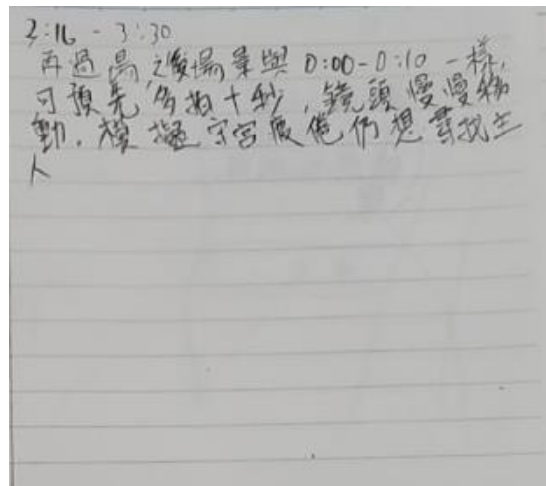 3:16 - 3:30
再過高之後場景與 0:00-0:10 一樣,
可預先多拍十秒,鏡頭慢慢移
動.模擬守宮疲倦仍想尋找主
人